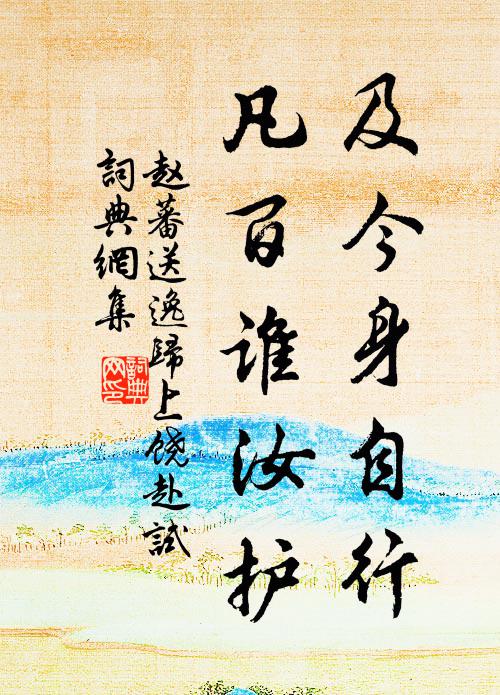 及今身自行
凡百谁汝护
赵蕃送逸歸上饶赴試
詞典網集
詞典网印